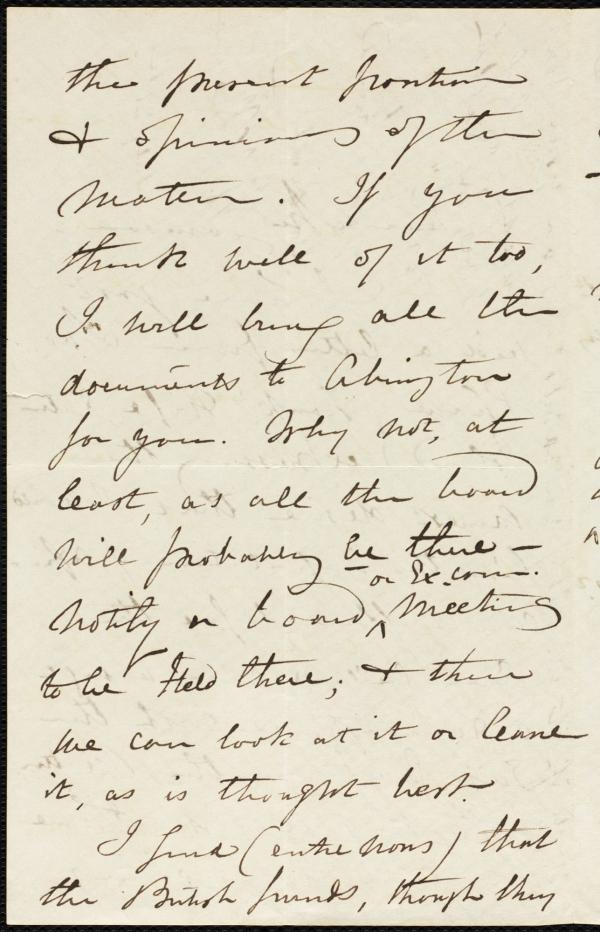 the present position
& opinions of the
matter. If you
think well of it too,
I will bring all the
documents to Abington
for you. Why not, at
least, as all the board
will probably be there –
notify a board ^ or Ex. com. meeting
to be Held there; & then
we can look at it or leave
it, as is thought best.
I find (entre nous) that
the British friends, though they